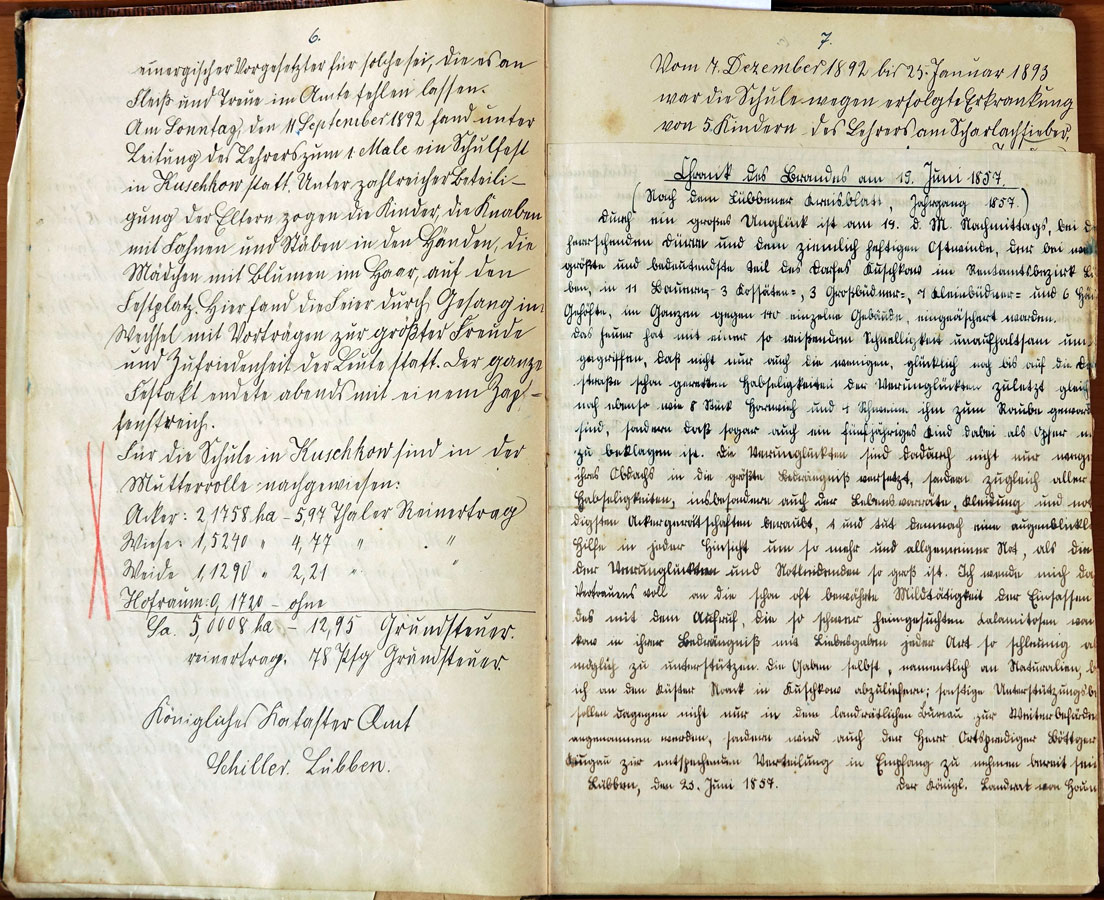 6.
energischer Vorgesetzter für solche sei, die es an
Fleiß und Treue im Amte fehlen lassen.
Am Sonntag, den 11 September 1892 fand unter
Leitung des Lehrers zum 1 Male ein Schulfest
in Kuschkow statt. Unter zahlreicher Beteili-
gung der Eltern zogen die Kinder, die Knaben
mit Fahnen und Stäben in den Händen, die
Mädchen mit Blumen im Haar, auf den
Festplatz. Hier fand die Feier durch Gesang im
Wechsel mit Vorträgen zur größter Freude
und Zufriedenheit der Leute statt. Der ganze
Festakt endete abends mit einem Zap-
fenstreich.
Für die Schule in Kuschkow sind in der
Mutterrolle nachgewiesen:
Acker: 2,1758 ha – 5,97 Thaler Reinertrag
Wiese: 1,5240 " 4,77 " "
Weide 1,1290 " 2,21 " "
Hofraum: 0,1720 – ohne
Sa. 5,0008 ha – 12,95 Grundsteuer.
reinertrag. 78 Pfg Grundsteuer
Königliches Kataster Amt
Schiller. Lübben.
7.
Vom 7. Dezember 1892 bis 25. Januar 1893
war die Schule wegen erfolgte Erkrankung
von 5 Kindern des Lehrers am Scharlachfieber,
Chronik des Brandes am 15. Juni 1857.
(Nach dem Lübbener Kreisblatt, Jahrgang 1857.)
Durch ein großes Unglück ist am 14. d. M. Nachmittags, bei
herrschenden Dürre und dem ziemlich heftigen Ostwinde, der bei
größte und bedeutendste Teil des Dorfes Kuschkow im Rentamtsbezirk
ben, in 11 Bauern, 3 Kossäten=, 3 Großbüdner=, 7 Kleinbüdner= und 6
Gehöfte, im Ganzen gegen 140 einzelne Gebäude, eingeäschert worden.
Das Feuer hat mit einer so reißenden Schnelligkeit unaufhaltsam um
gegriffen, daß nicht nur auch die wenigen, glücklich noch bis auf die
straße schon geretteten Habseligkeiten der Verunglückten zuletzt
noch ebenso wie 8 Stück Hornvieh und 4 Schweine ihm zum Raube
sind, sondern daß sogar auch ein fünfjähriges Kind dabei als Opfer
zu beklagen ist. Die Verunglückten sind dadurch nicht nur
ihres Obdachs in die größte Bedrängniß versetzt, sondern zugleich aller
Habseligkeiten, insbesondere auch der Lebensvorräte, Kleidung und
digsten Ackergerätschaften beraubt, und tut demnach eine
Hilfe in jeder Hinsicht um so mehr und allgemeiner Not, als die
der Verunglückten und Notleidenden so groß ist. Ich wende mich
Vertrauens voll an die schon oft bewährte Mildtätigkeit der Einsassen
des mit dem Aufruf, die so schwer heimgesuchten Calamitosen von
kow in ihrer Bedrängniß mit Liebesgaben jeder Art so schleunig
möglich zu unterstützen. Die Gaben selbst, namentlich an Naturalien,
ich an den Küster Noack in Kuschkow abzuliefern; sonstige
sollen dagegen nicht nur in dem landrätlichen Bureau zur
angenommen werden, sondern wird auch der Herr Ortsprediger Böttger
zur entsprechenden Verteilung in Empfang zu nehmen bereit sein
Lübben, den 23. Juni 1857. Der Königl. Landrat von